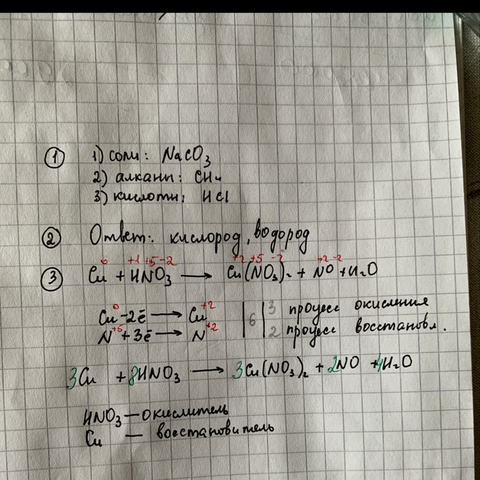 ① 1) соли: NaCO₃
2) алкани: CH₄
3) кислоти; HCl
② Ответ: кислород, водород
0 +1 +5 -2 +2 +5 -2 +2 -2
③ Cu + HNO₃ → Cu(NO₃)₂ + NO + H₂O
Cu⁰ - 2ē → Cu⁺² | 6 | 3 процес окисления
N⁺⁵ + 3ē → N⁺² | | 2 процес восстановл.
3Cu + 8HNO₃ → 3Cu(NO₃)₂ + 2NO + 4H₂O
HNO₃ — окислитель
Cu — восстановитель